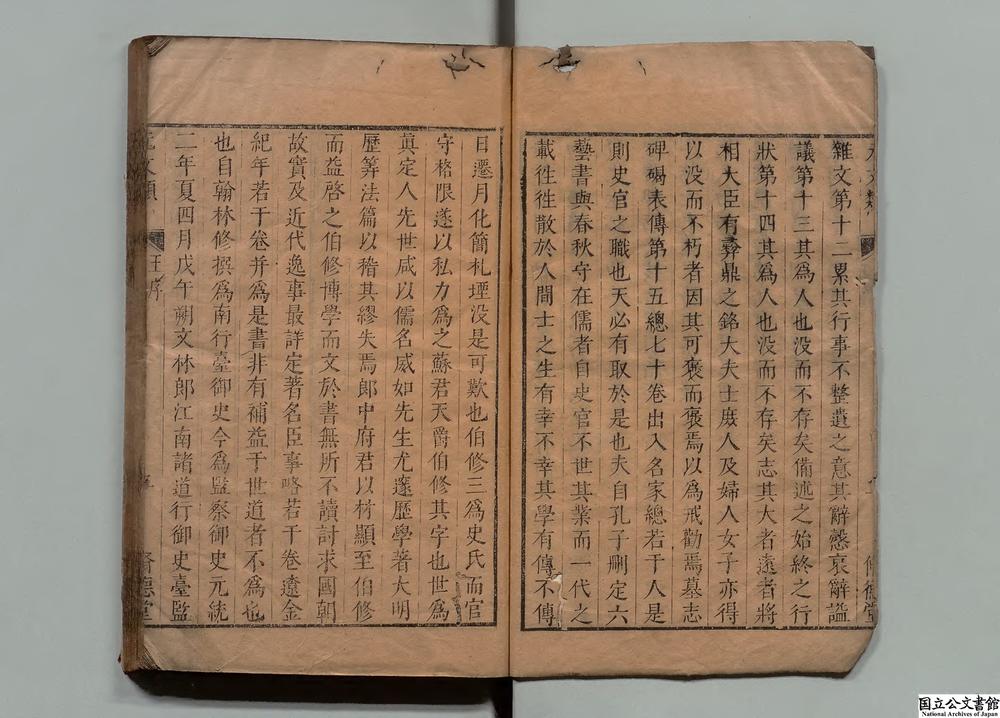 雜文第十二累其行事不整遺之意其辭慼哀辭謚
議第十三其爲人也没而不存矣備述之始終之行
狀第十四其爲人也没而不存矣志其大者遠者將
相大臣有彛鼎之銘大夫士庻人及婦人女子亦得
以没而不朽者因其可襃而襃焉以爲戒勸焉墓志
碑碣表傳第十五總七十卷出入名家總若干人是
則史官之職也天必有取於是也夫自孔子刪定六
藝書與春秋守在儒者自史官不世其業而一代之
載徃徃散於人間士之生有幸不幸其學有傳不傳
日遷月化簡札堙没是可歎也伯修三爲史氏而官
守格限遂以私力爲之蘇君天爵伯修其字也世爲
真定人先世咸以儒名威如先生尤邃歷學著大明
歷筭法篇以稽其繆失焉郎中府君以材顯至伯修
而益啓之伯修博學而文於書無所不讀討求國朝
故實及近代逸事最詳定著名臣事略若干卷遼金
紀年若干卷并爲是書非有補益于世道者不爲也
也自翰林修撰爲南行臺御史今爲監察御史元統
二年夏四月戊午朔文林郎江南諸道行御史臺監
元文類 王序 脩德堂
国立公文書館
National Archives of Japan